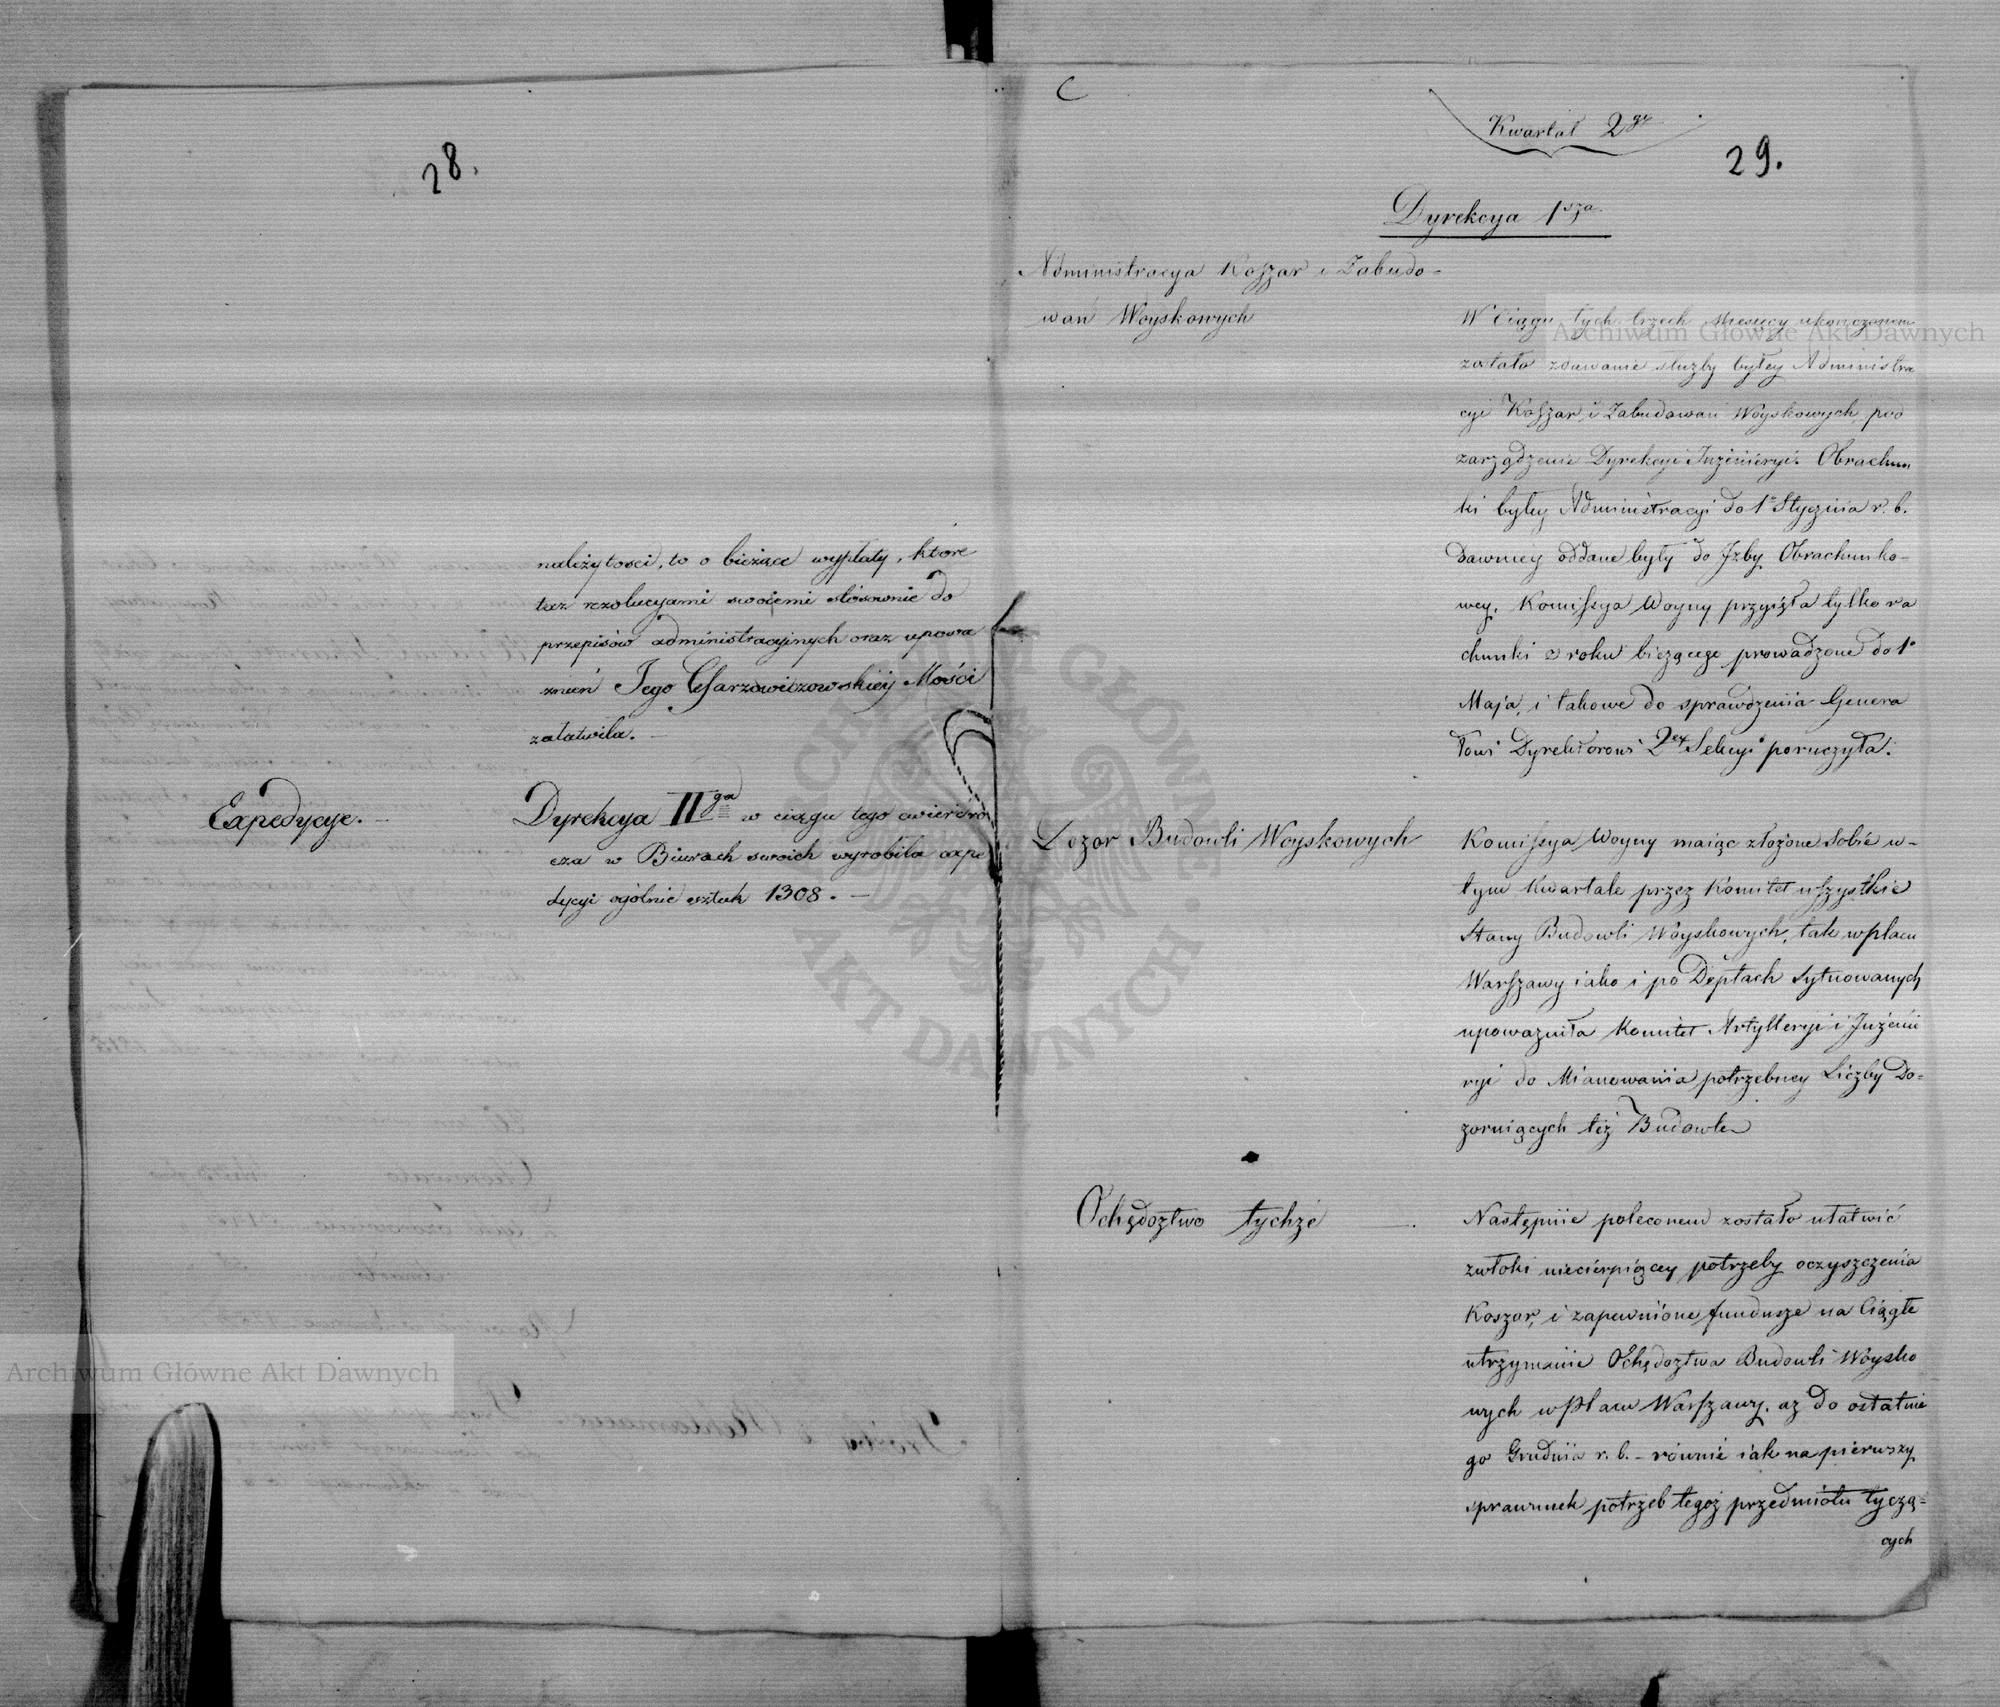 28.
należytości, to o bieżące wypłaty, które
też rezolucyami swoiemi stósownie do
przepisów administracyjnych oraz upowa
żnień Jego Cesarzowiczowskiéy Mości
załatwiła. —
Expedycye. —
Dyrekcya IIga w ciągu tego ćwierćro
cza w Biurach swoich wyrobiła expe
dycyi ogólnie sztuk 1308. —
C
Kwartał 2gi
29.
Dyrekcya 1sza
Administracya Koszar i Zabudo-
wań Woyskowych
W Ciągu tych trzech Miesięcy ukończonem
zostało zdawanie służby byłey Administra
cyi Koszar i Zabudowań Woyskowych, pod
zarządzenie Dyrekcyi Inżenieryi. Obrachun
ki byłey Administracyi do 1o Stycznia r. b.
dawniey oddane były do Izby Obrachunko-
wey, Komissya Woyny przyięła tylko ra
chunki z roku bieżącego prowadzone do 1o
Maja, i takowe do sprawdzenia Genera
łowi Dyrektorowi 2ey Sekcyi poruczyła.
Dozor Budowli Woyskowych
Komissya Woyny maiąc złożone Sobie w-
tym Kwartale przez Komitet wszystkie
Stany Budowli Woyskowych, tak w placu
Warszawy iako i po Deptach Sytuowanych
upoważniła Komitet Artylleryi i Inżenie
ryi do Mianowania potrzebney Liczby Do-
zoruiących też Budowle
Ochędoztwo tychże
Następnie poleconem zostało ułatwić
zwłoki niecierpiącey potrzeby oczyszczenia
Koszar, i zapewnione fundusze na Ciągłe
utrzymanie Ochędoztwa Budowli Woysko
wych w Placu Warszawy, aż do ostatnie
go Grudnia r. b. - równie iak na pierwszy
sprawunek potrzeb tegoż przedmiotu tyczą-
cych
Archiwum Główne Akt Dawnych
Archiwum Główne Akt Dawnych
ARCHIWUM GŁÓWNE AKT DAWNYCH